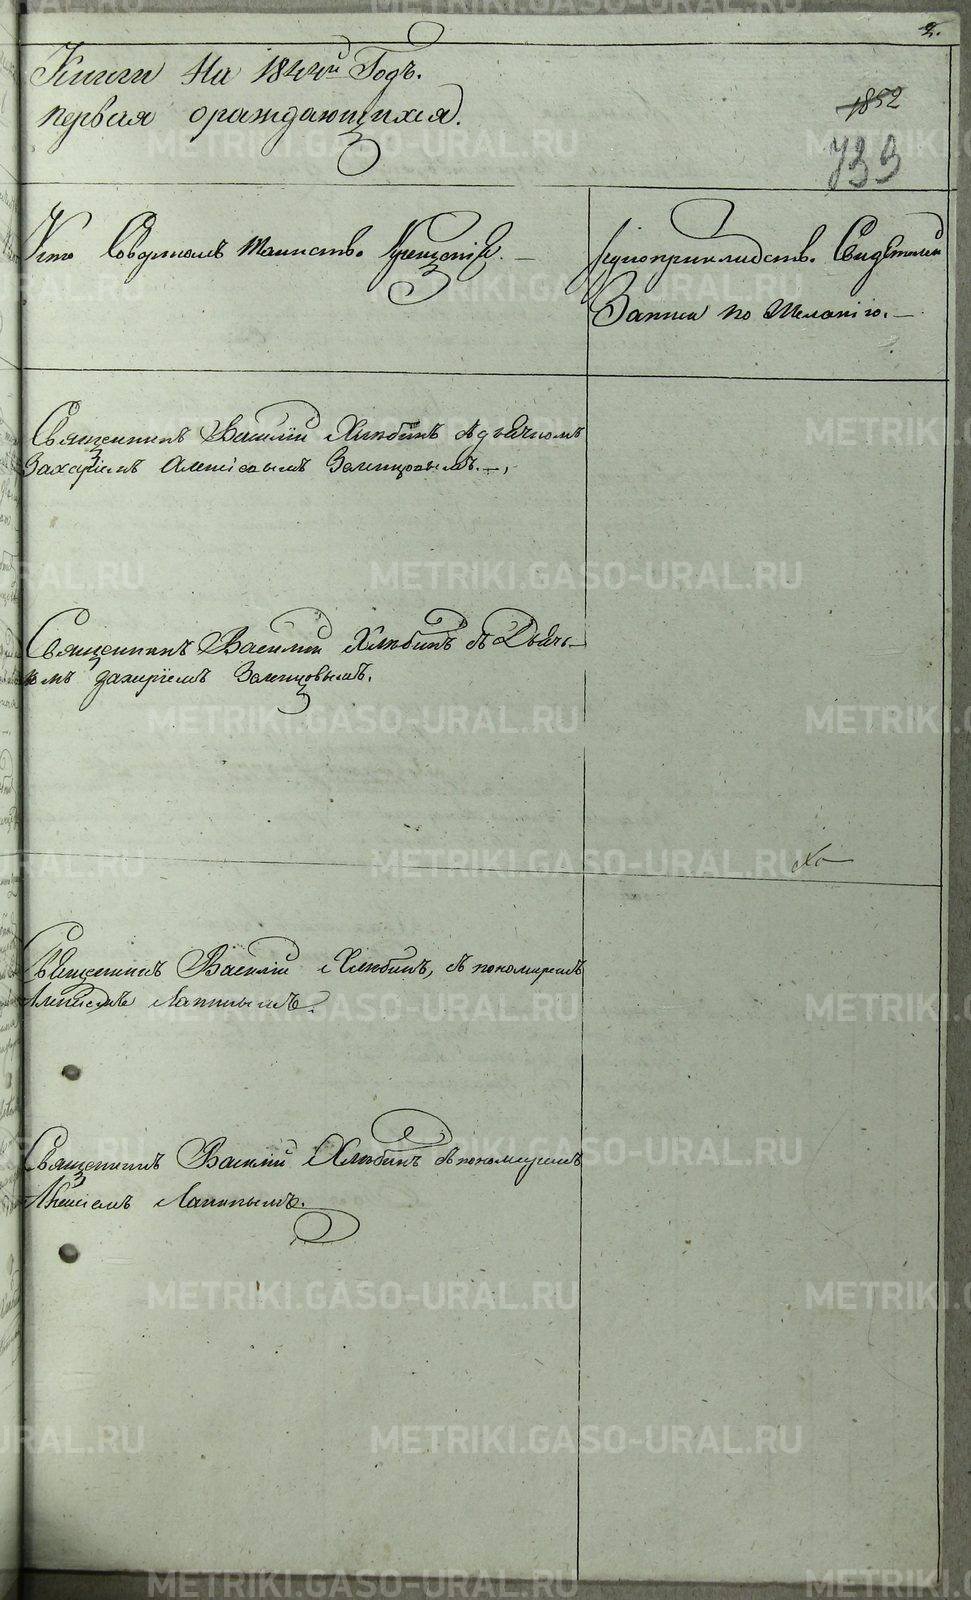 2.
Книги На 1844й Годъ.
первая ораждающихся.
1852
733
Кто Совершалъ таинство Крещенія. —
Рукоприкладство Свидѣтелей
Записи по Желанію. —
Священникъ Василій Хлѣбинъ сдьячкомъ
Захаріемъ Алексіевымъ
Священникъ Василій Хлѣбинъ съ Дьячь-
комъ Захаріемъ
Священникъ Василій Хлѣбинъ, съ пономаремъ
Алексіемъ Лапинымъ.
Священникъ Василій Хлѣбинъ съ пономаремъ
Алексіемъ Лапинымъ.
METRIKI.GASO-URAL.RU